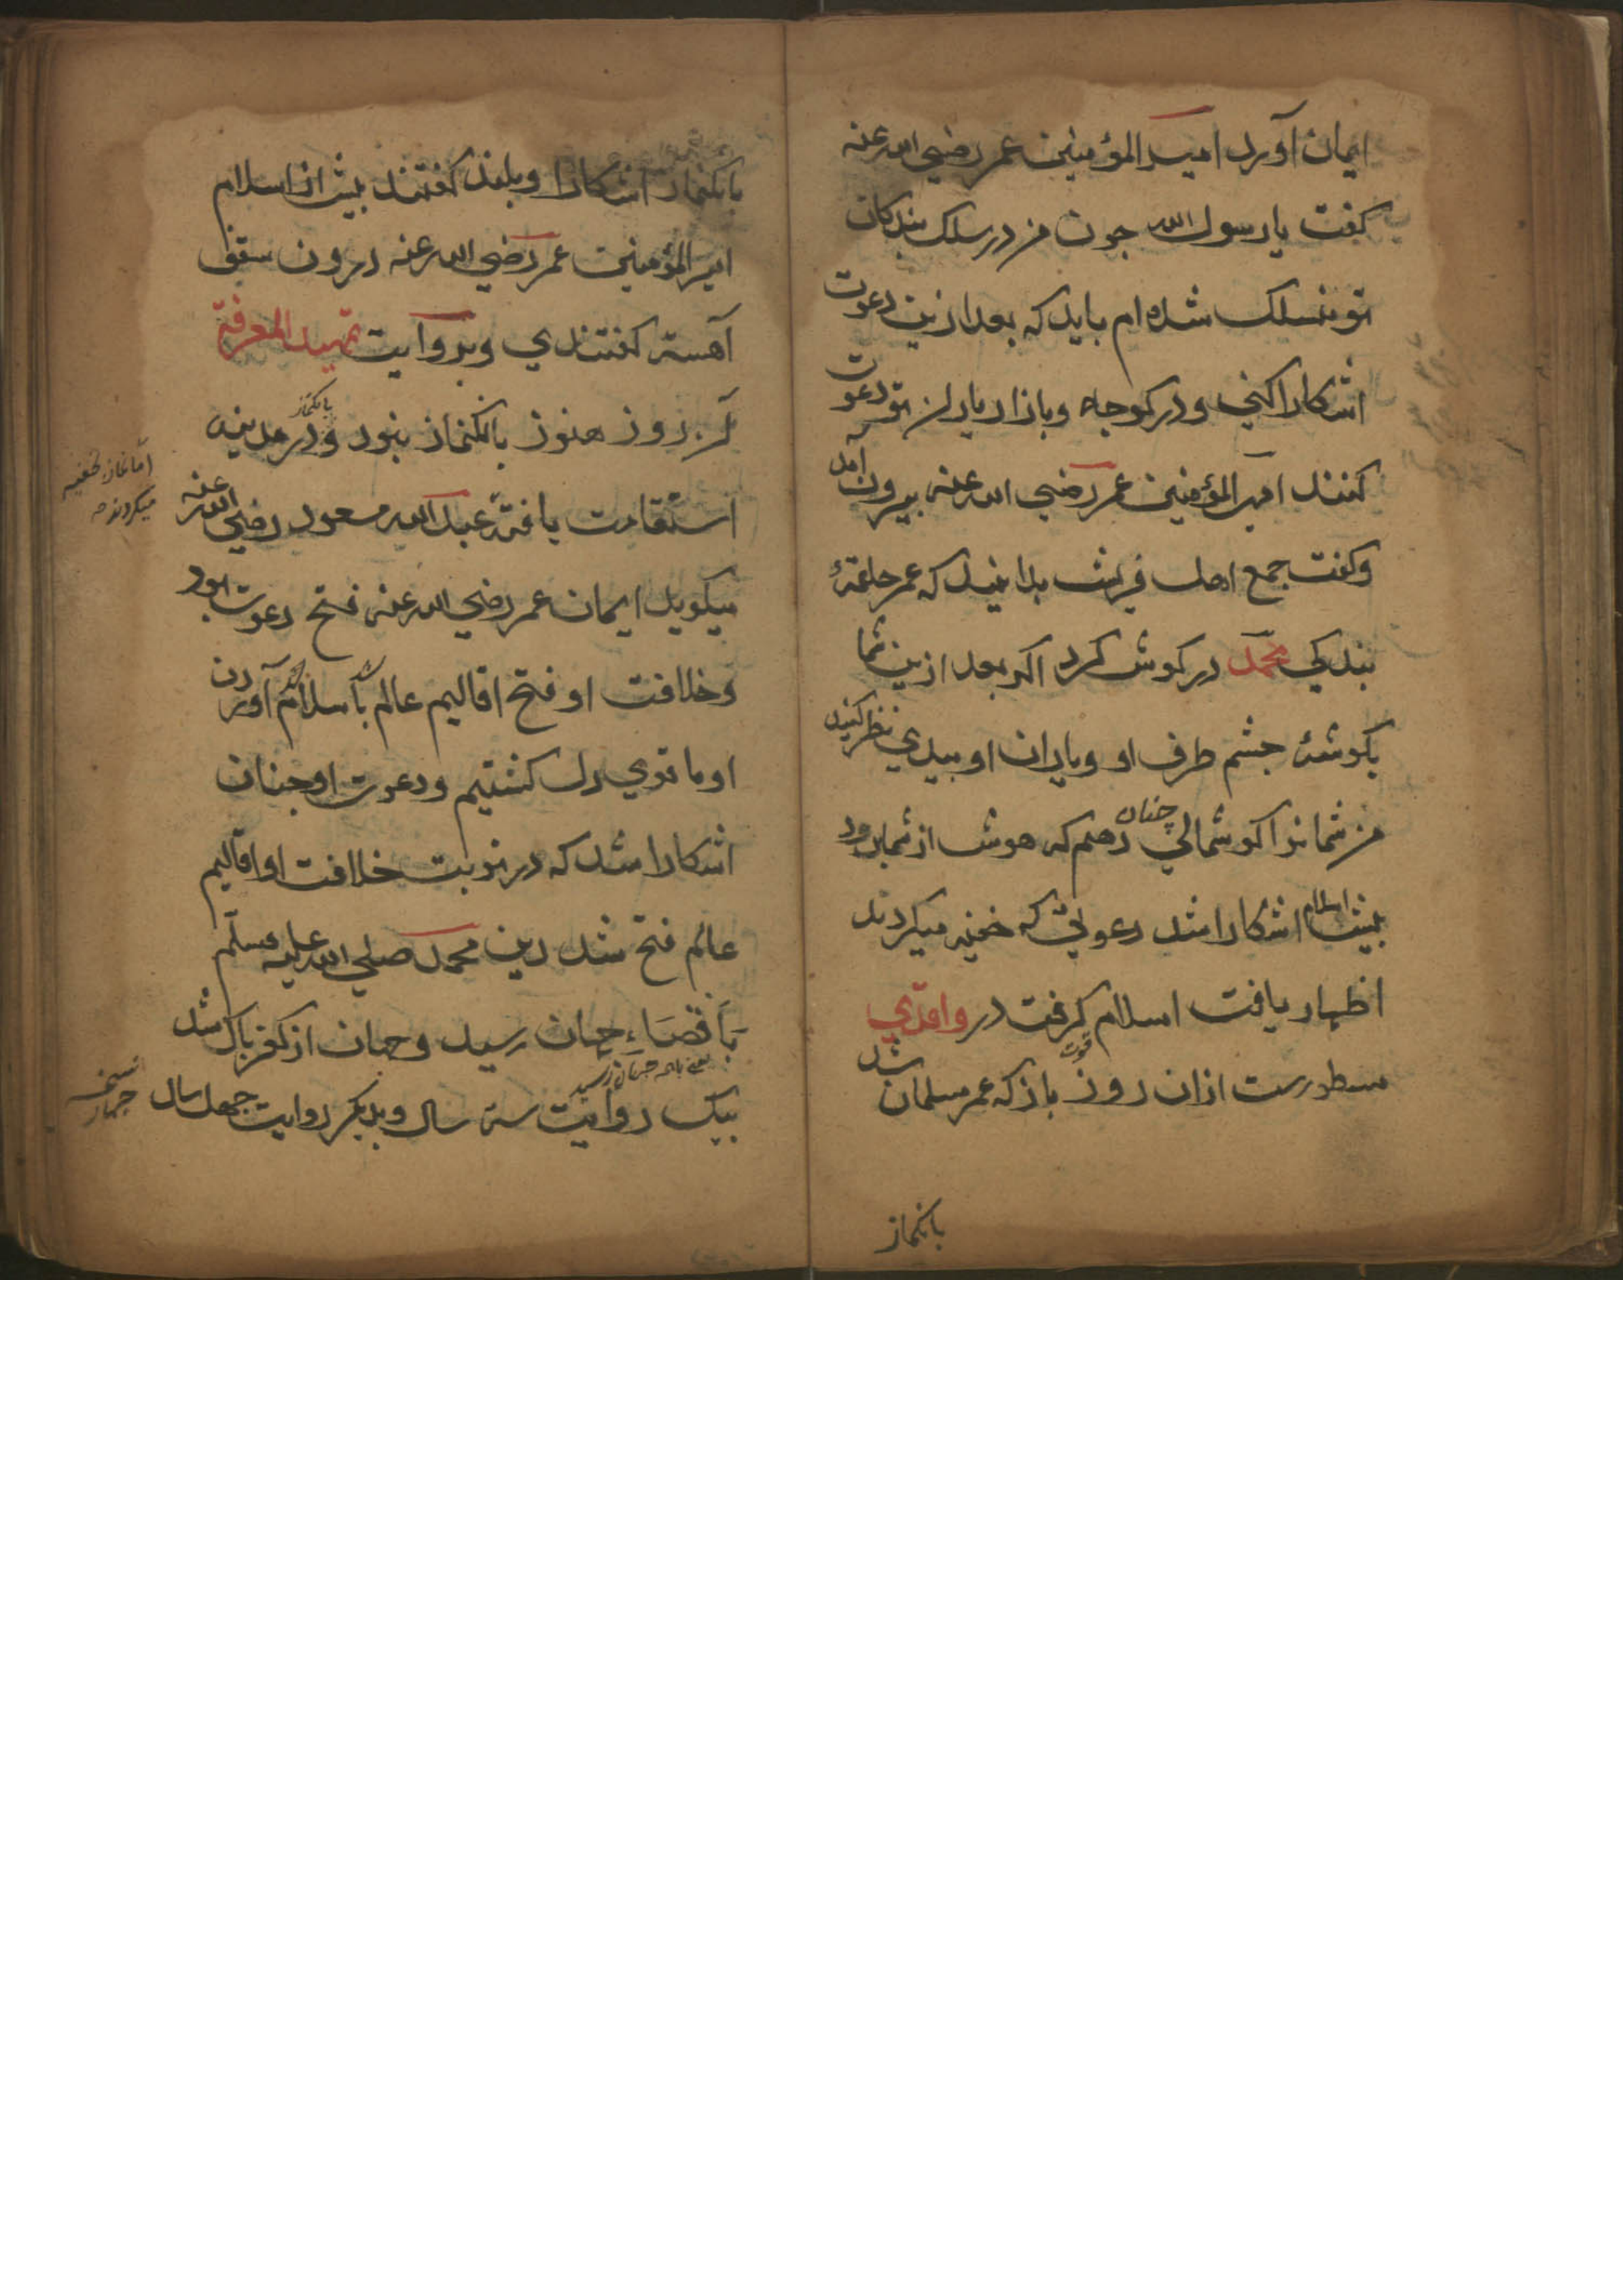 ایمان آورد امیر المؤمنین عمر رضي الله عنه
کفت یا رسول الله جون من در سلک بندکان
تو منسلک شده ام باید که بعد ازین دعوت
اشکارا کني و در کوجه و بازار یاران تو دعوت
کنند امیر المؤمنین عمر رضي الله عنه بیرون آمد
و کفت جمع اهل قریش بدانید که عمر حلقهٔ
بندکي محمد در کوش کرد اکر بعد ازین شما
بکوشهٔ جشم طرف او و یاران او ببدي نظر کنید
من شمانرا کوشمالي چنان دهم که هوش از شما برود
بیش اسلام اشکارا شد دعوتي که خفیه میکردند
اظهار یافت اسلام قوت کرفت در واقدي
مسطورست ازان روز باز که عمر مسلمان شد
بانکنماز
بانکنماز اشکارا و بلند کفتند بیش از اسلام
امیر المؤمنین عمر رضي الله عنه درون سقف
آهسته کفتندي و بروایت تمهید المعرفة
آن روز هنوز بانکنماز نبود و بانکنماز در مدینه
اما نماز بخفیه
میکردند
استقامت یافته عبد الله مسعود رضي الله عنه
میکوید ایمان عمر رضي الله عنه فتح دعوت بود
و خلافت او فتح اقالیم عالم باسلام آوردن
او ما قوي دل کشتیم و دعوت او جنان
اشکارا شد که در نوبت خلافت او اقالیم
عالم فتح شد دین محمد صلي الله علیه وسلم
باقصاء جهان رسید و جهان از کفر باک شد
بیک روایت سه سال و بدیکر روایت جهل سال
نسخه
جهار